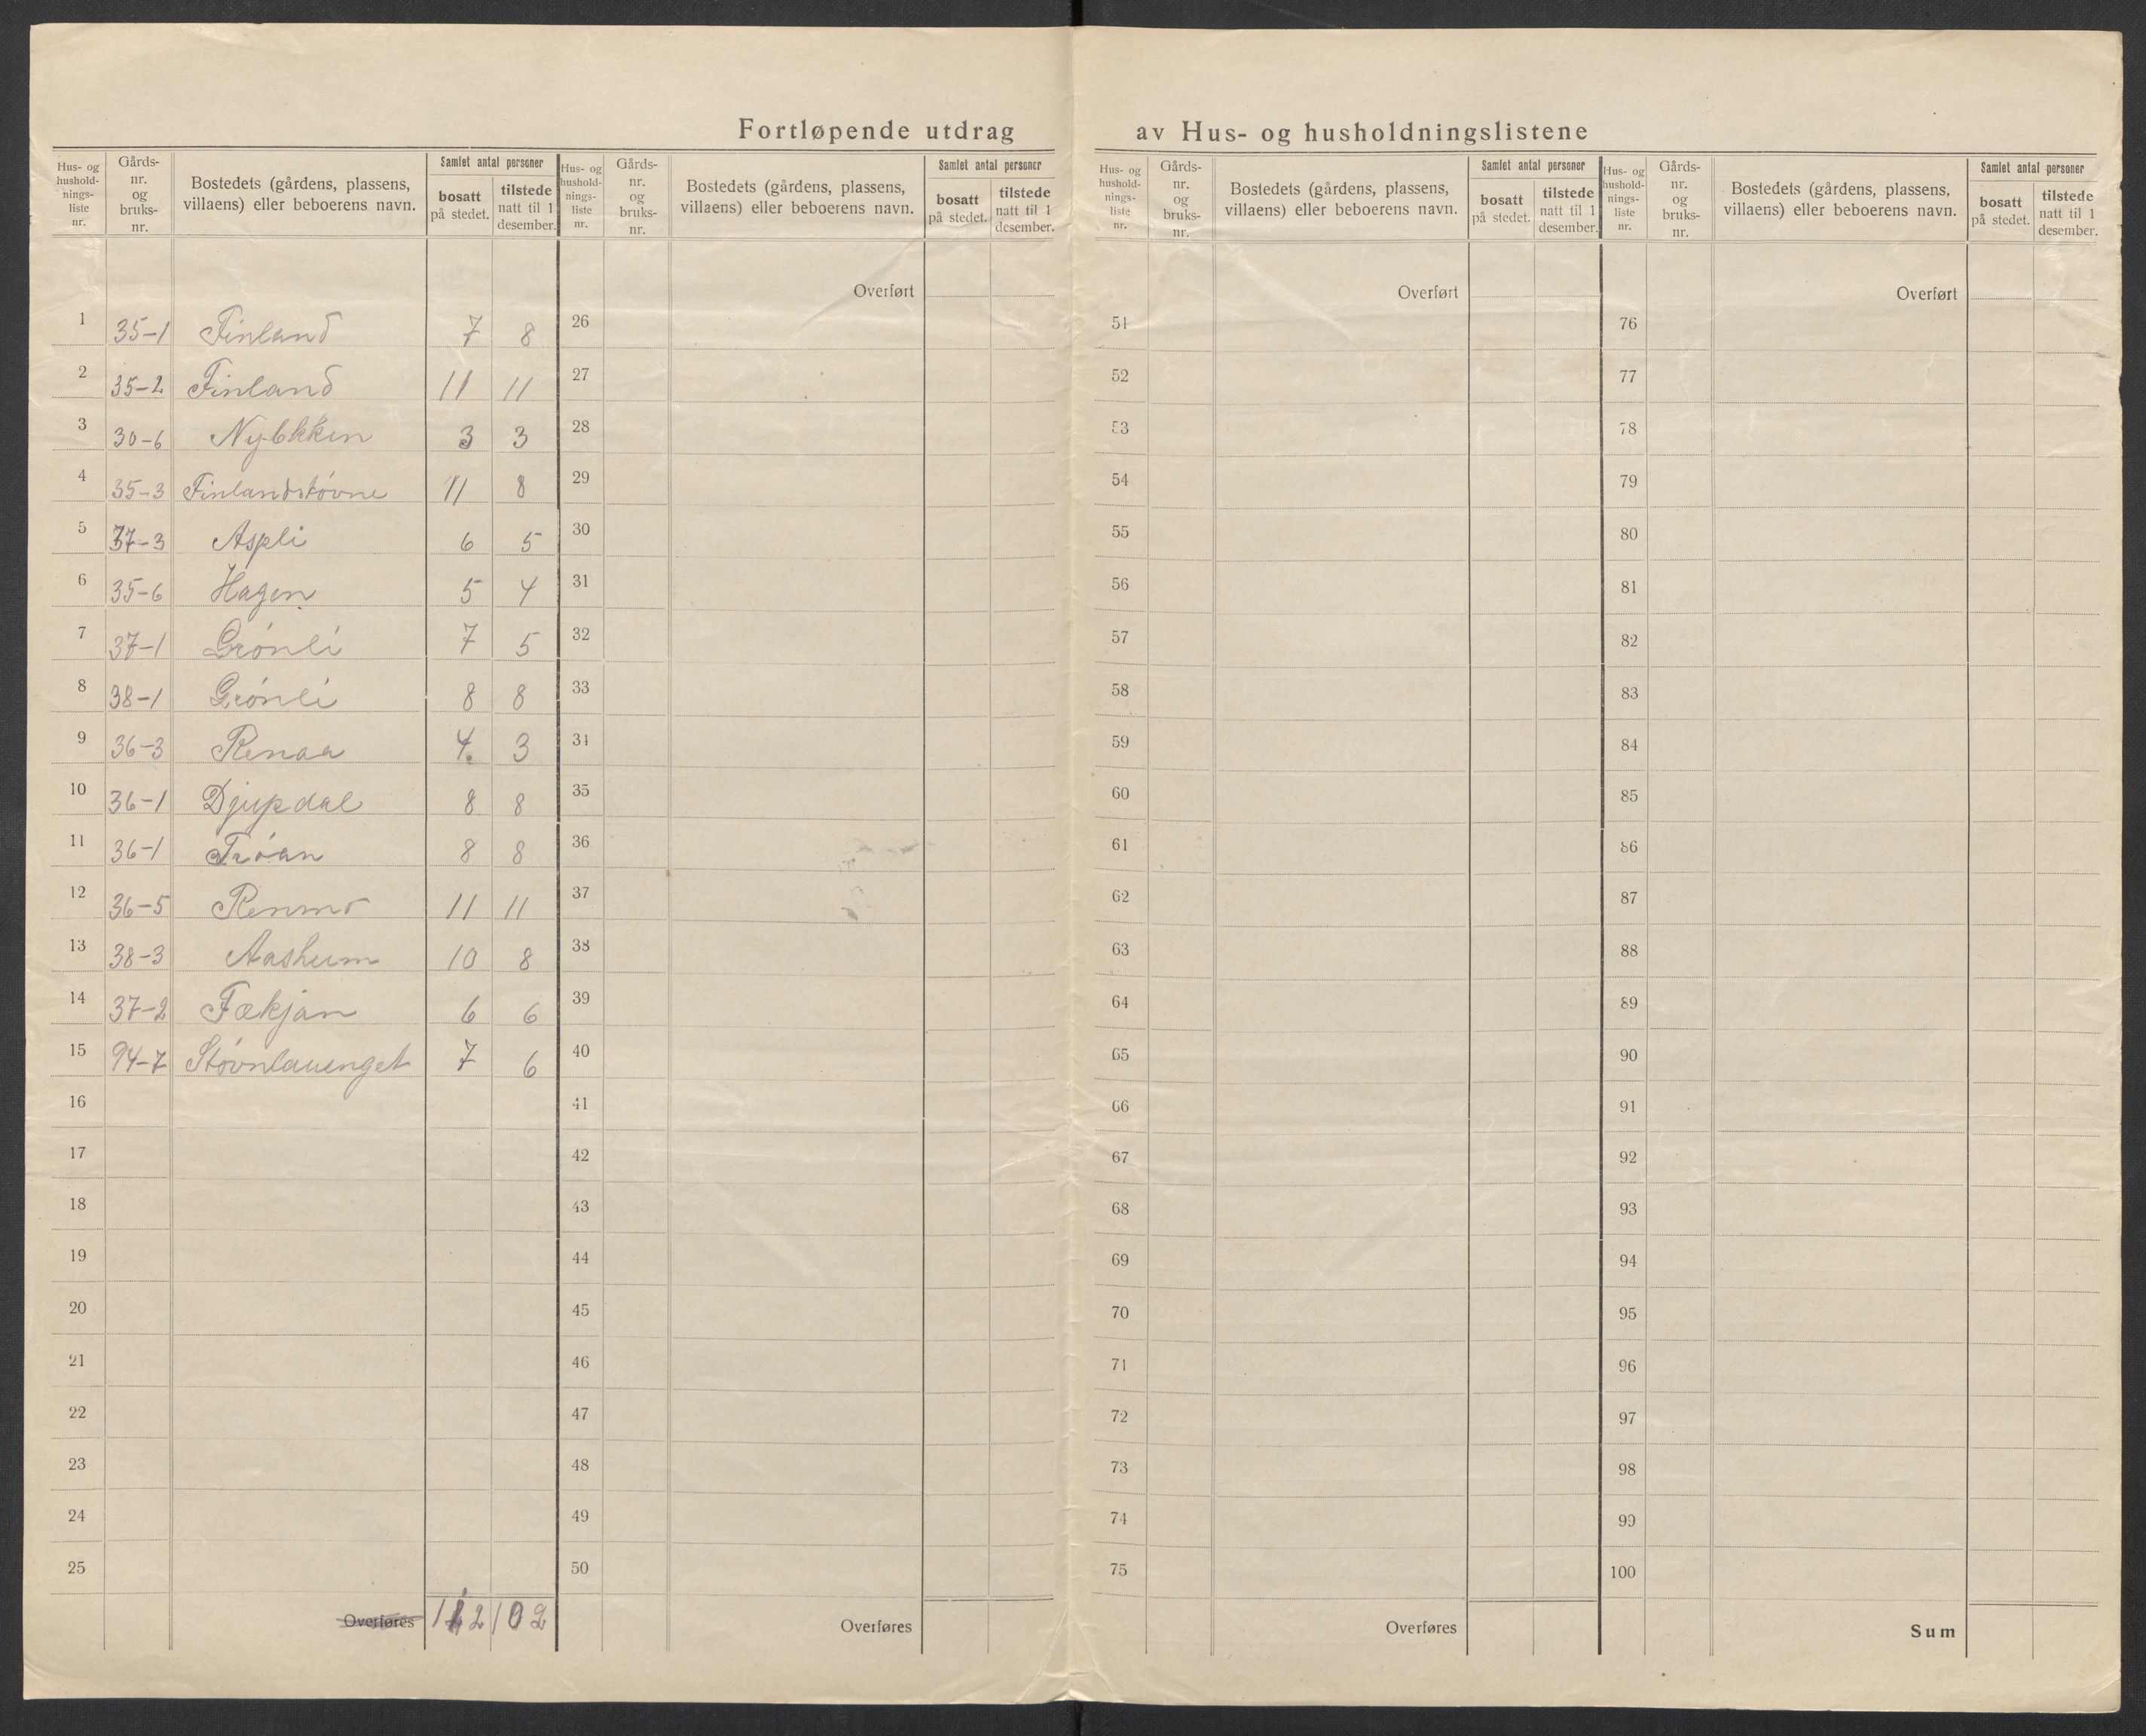 Fortløpende utdrag av Hus- og husholdningslistene
Hus- og hushold-nings-liste nr. Gårds-nr. og bruks-nr. Bostedets (gårdens, plassens, villaens) eller beboerens navn. Samlet antal personer bosatt på stedet. tilstede natt til 1 desember.
Hus- og hushold-nings-liste nr. Gårds-nr. og bruks-nr. Bostedets (gårdens, plassens, villaens) eller beboerens navn. Samlet antal personer bosatt på stedet. tilstede natt til 1 desember.
Hus- og hushold-nings-liste nr. Gårds-nr. og bruks-nr. Bostedets (gårdens, plassens, villaens) eller beboerens navn. Samlet antal personer bosatt på stedet. tilstede natt til 1 desember.
Hus- og hushold-nings-liste nr. Gårds-nr. og bruks-nr. Bostedets (gårdens, plassens, villaens) eller beboerens navn. Samlet antal personer bosatt på stedet. tilstede natt til 1 desember.
Overført Overført Overført
1 35-1 Finland 7 8 26 51 76
2 35-2 Finland 11 11 27 52 77
3 30-6 Nybkken 3 3 28 53 78
4 35-3 Finlandstóvne 11 8 29 54 79
5 37-3 Aspli 6 5 30 55 80
6 35-6 Hagen 5 4 31 56 81
7 37-1 Grónli 7 5 32 57 82
8 38-1 Grónli 8 8 33 58 83
9 36-3 Renaa 4. 3 34 59 84
10 36-1 Djupdal 8 8 35 60 85
11 36-1 Tróan 8 8 36 61 86
12 36-5 Renmo 11 11 37 62 87
13 38-3 Aasheim 10 8 38 63 88
14 37-2 Fækjan 6 6 39 64 89
15 94-7 Stóvnlauenget 7 6 40 65 90
16 41 66 91
17 42 67 92
18 43 68 93
19 44 69 94
20 45 70 95
21 46 71 96
22 47 72 97
23 48 73 98
24 49 74 99
25 50 75 100
Overføres 112 102 Overføres Overføres Sum